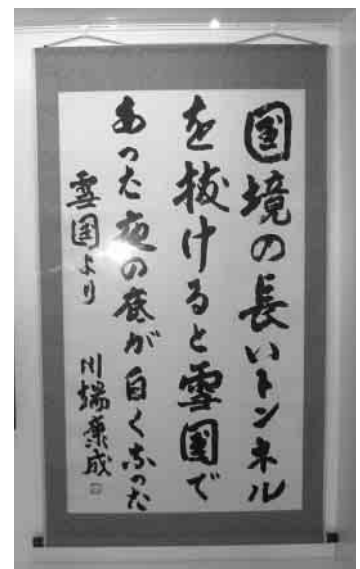 国境の長いトンネル
を抜けると雪国で
あった夜の底が白くなった
雪国より
川端康成